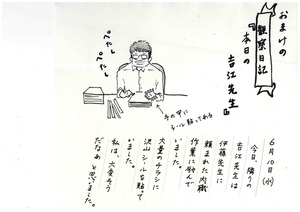 おまけの
観察日記
『本日の
吉江先生』
ぺたし
ぺたし
手の甲に
シール貼ってある
6月10日(水)
今日、隣りの
吉江先生は
伊藤先生に
頼まれた内職
作業に励んで
いました。
大量のチラシに
沢山シールを貼って
いました。
私は、大変そう
だなぁと思いました。